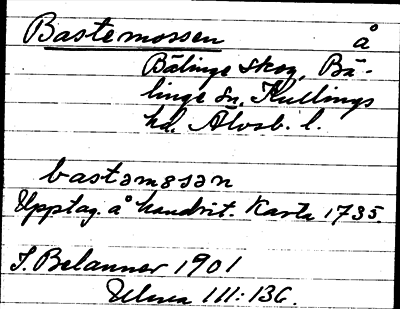 Bastemossen å
Bälinge skog, Bä-
linge sn, Kullings
hd, Älvsb. l.
bastamɷsən
Upptag. å handrit. Karta 1735.
J. Belanner 1901
Ulma 111:136.